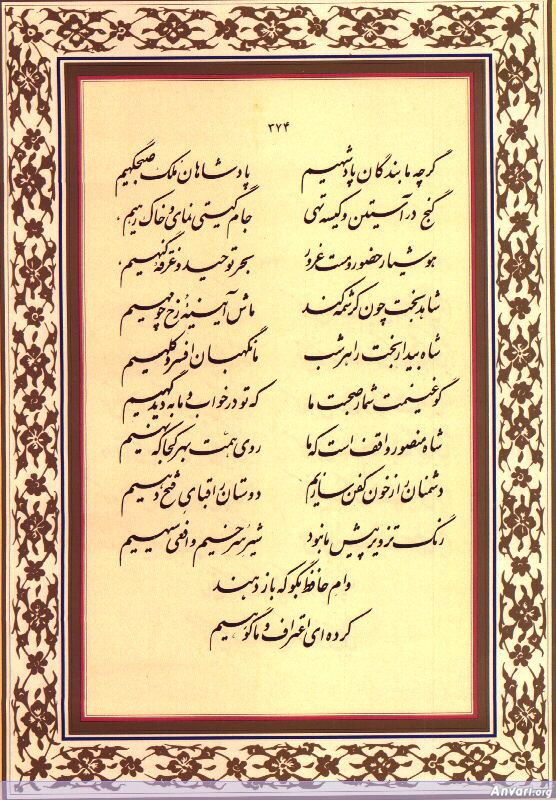 ۳۷۴
گرچه ما بندگان پادشهیم پادشاهان ملک صبحگهیم
گنج در آستین و کیسه تهی جام گیتی نمای و خاک رهیم
هوشیار حضور و مست غرور بحر توحید و غرقه گنهیم
شاهد بخت چون کرشمه کند ماش آیینه رخ چو مهیم
شاه بیدار بخت را هر شب ما نگهبان افسر و کلهیم
گو غنیمت شمار صحبت ما که تو در خواب و ما به دیده گهیم
شاه منصور واقف است که ما روی همت بهر کجا که نهیم
دشمنان را ز خون کفن سازیم دوستان را قبای فتح دهیم
رنگ تزویر پیش ما نبود شیر سرخیم و افعی سیهیم
وام حافظ بگو که باز دهند
کرده‌ای اعتراف و ما گوهیم
Anvari.org